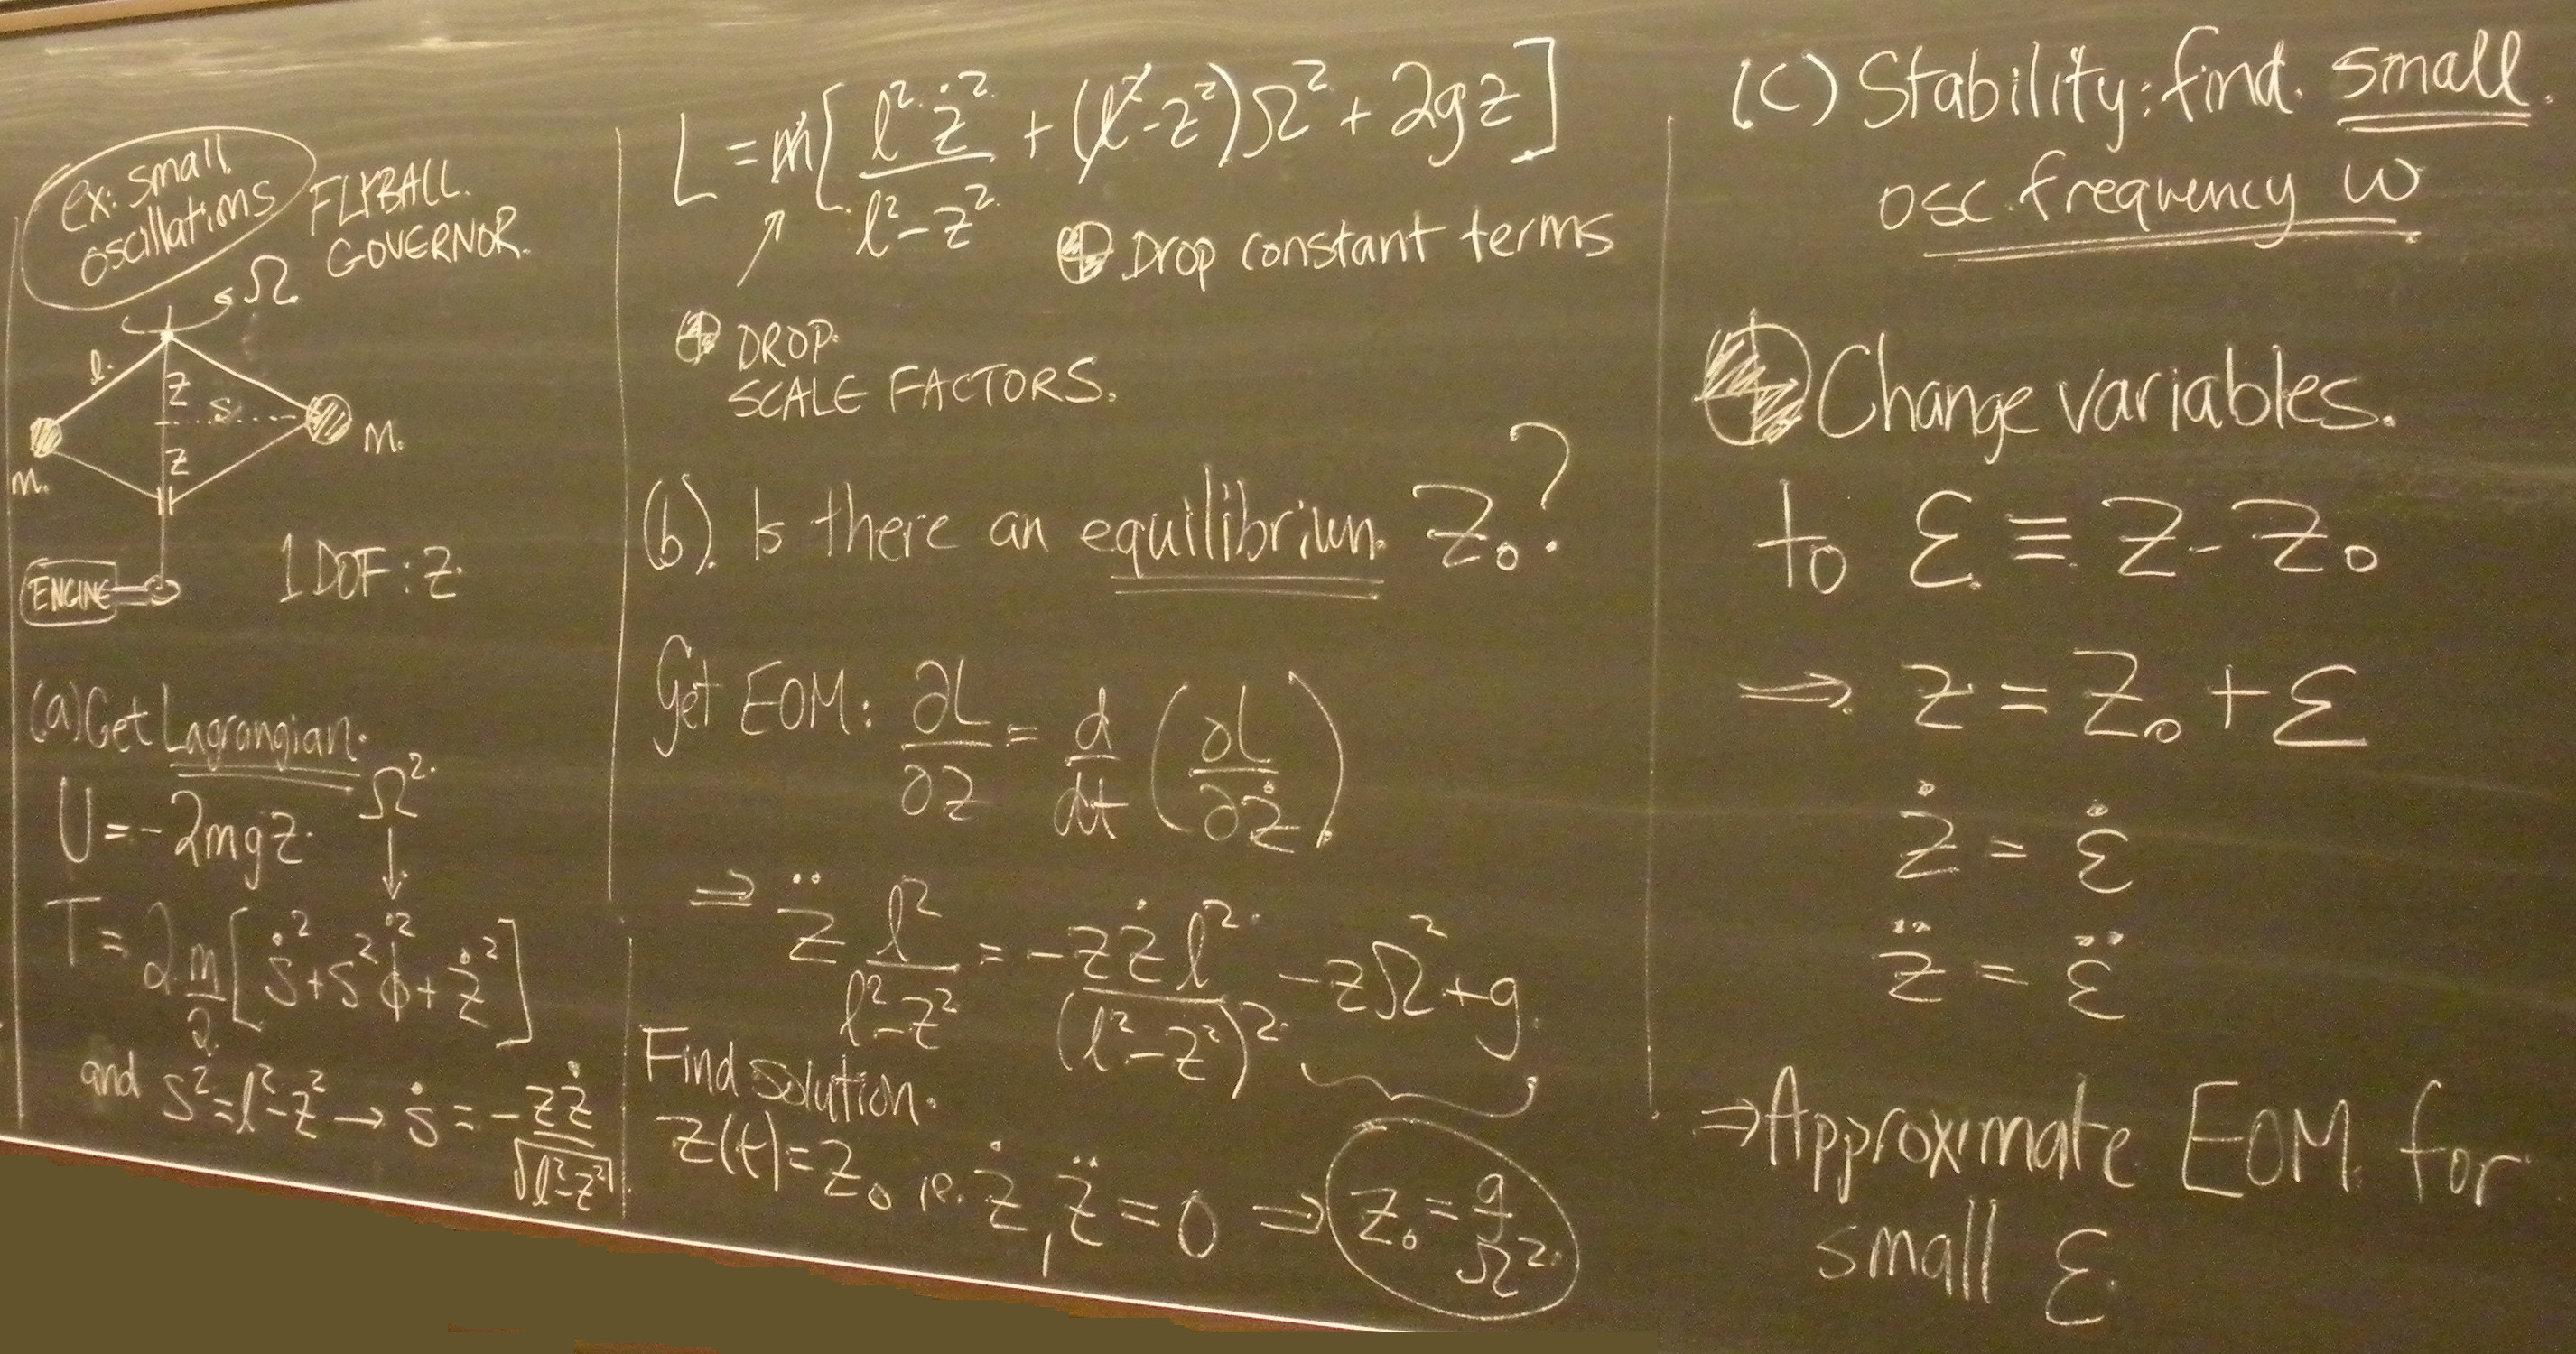 ex: small
oscillations
FLYBALL
GOVERNOR
Ω
l
z
s
m
z
m
ENGINE
1 DOF: z
(a) Get Lagrangian.
U = -2mgz
Ω²
↓
T = 2 m/2 [ṡ² + s² φ̇² + ż²]
and s² = l² - z² → ṡ = -zż/√(l²-z²)
L = m[ l² ż²/(l² - z²) + (l² - z²)Ω² + 2gz ]
Drop constant terms
DROP
SCALE FACTORS.
(b). Is there an equilibrium z₀?
Get EOM: ∂L/∂z = d/dt (∂L/∂ż)
⇒ z̈ l²/(l²-z²) = -zż l²/(l²-z²)² - zΩ² + g
Find solution.
z(t) = z₀ ie. ż, z̈ = 0 ⇒ z₀ = g/Ω²
(C) Stability: find small
osc. frequency ω
Change variables.
to ε ≡ z - z₀
⇒ z = z₀ + ε
ż = ε̇
z̈ = ε̈
⇒ Approximate EOM for
small ε